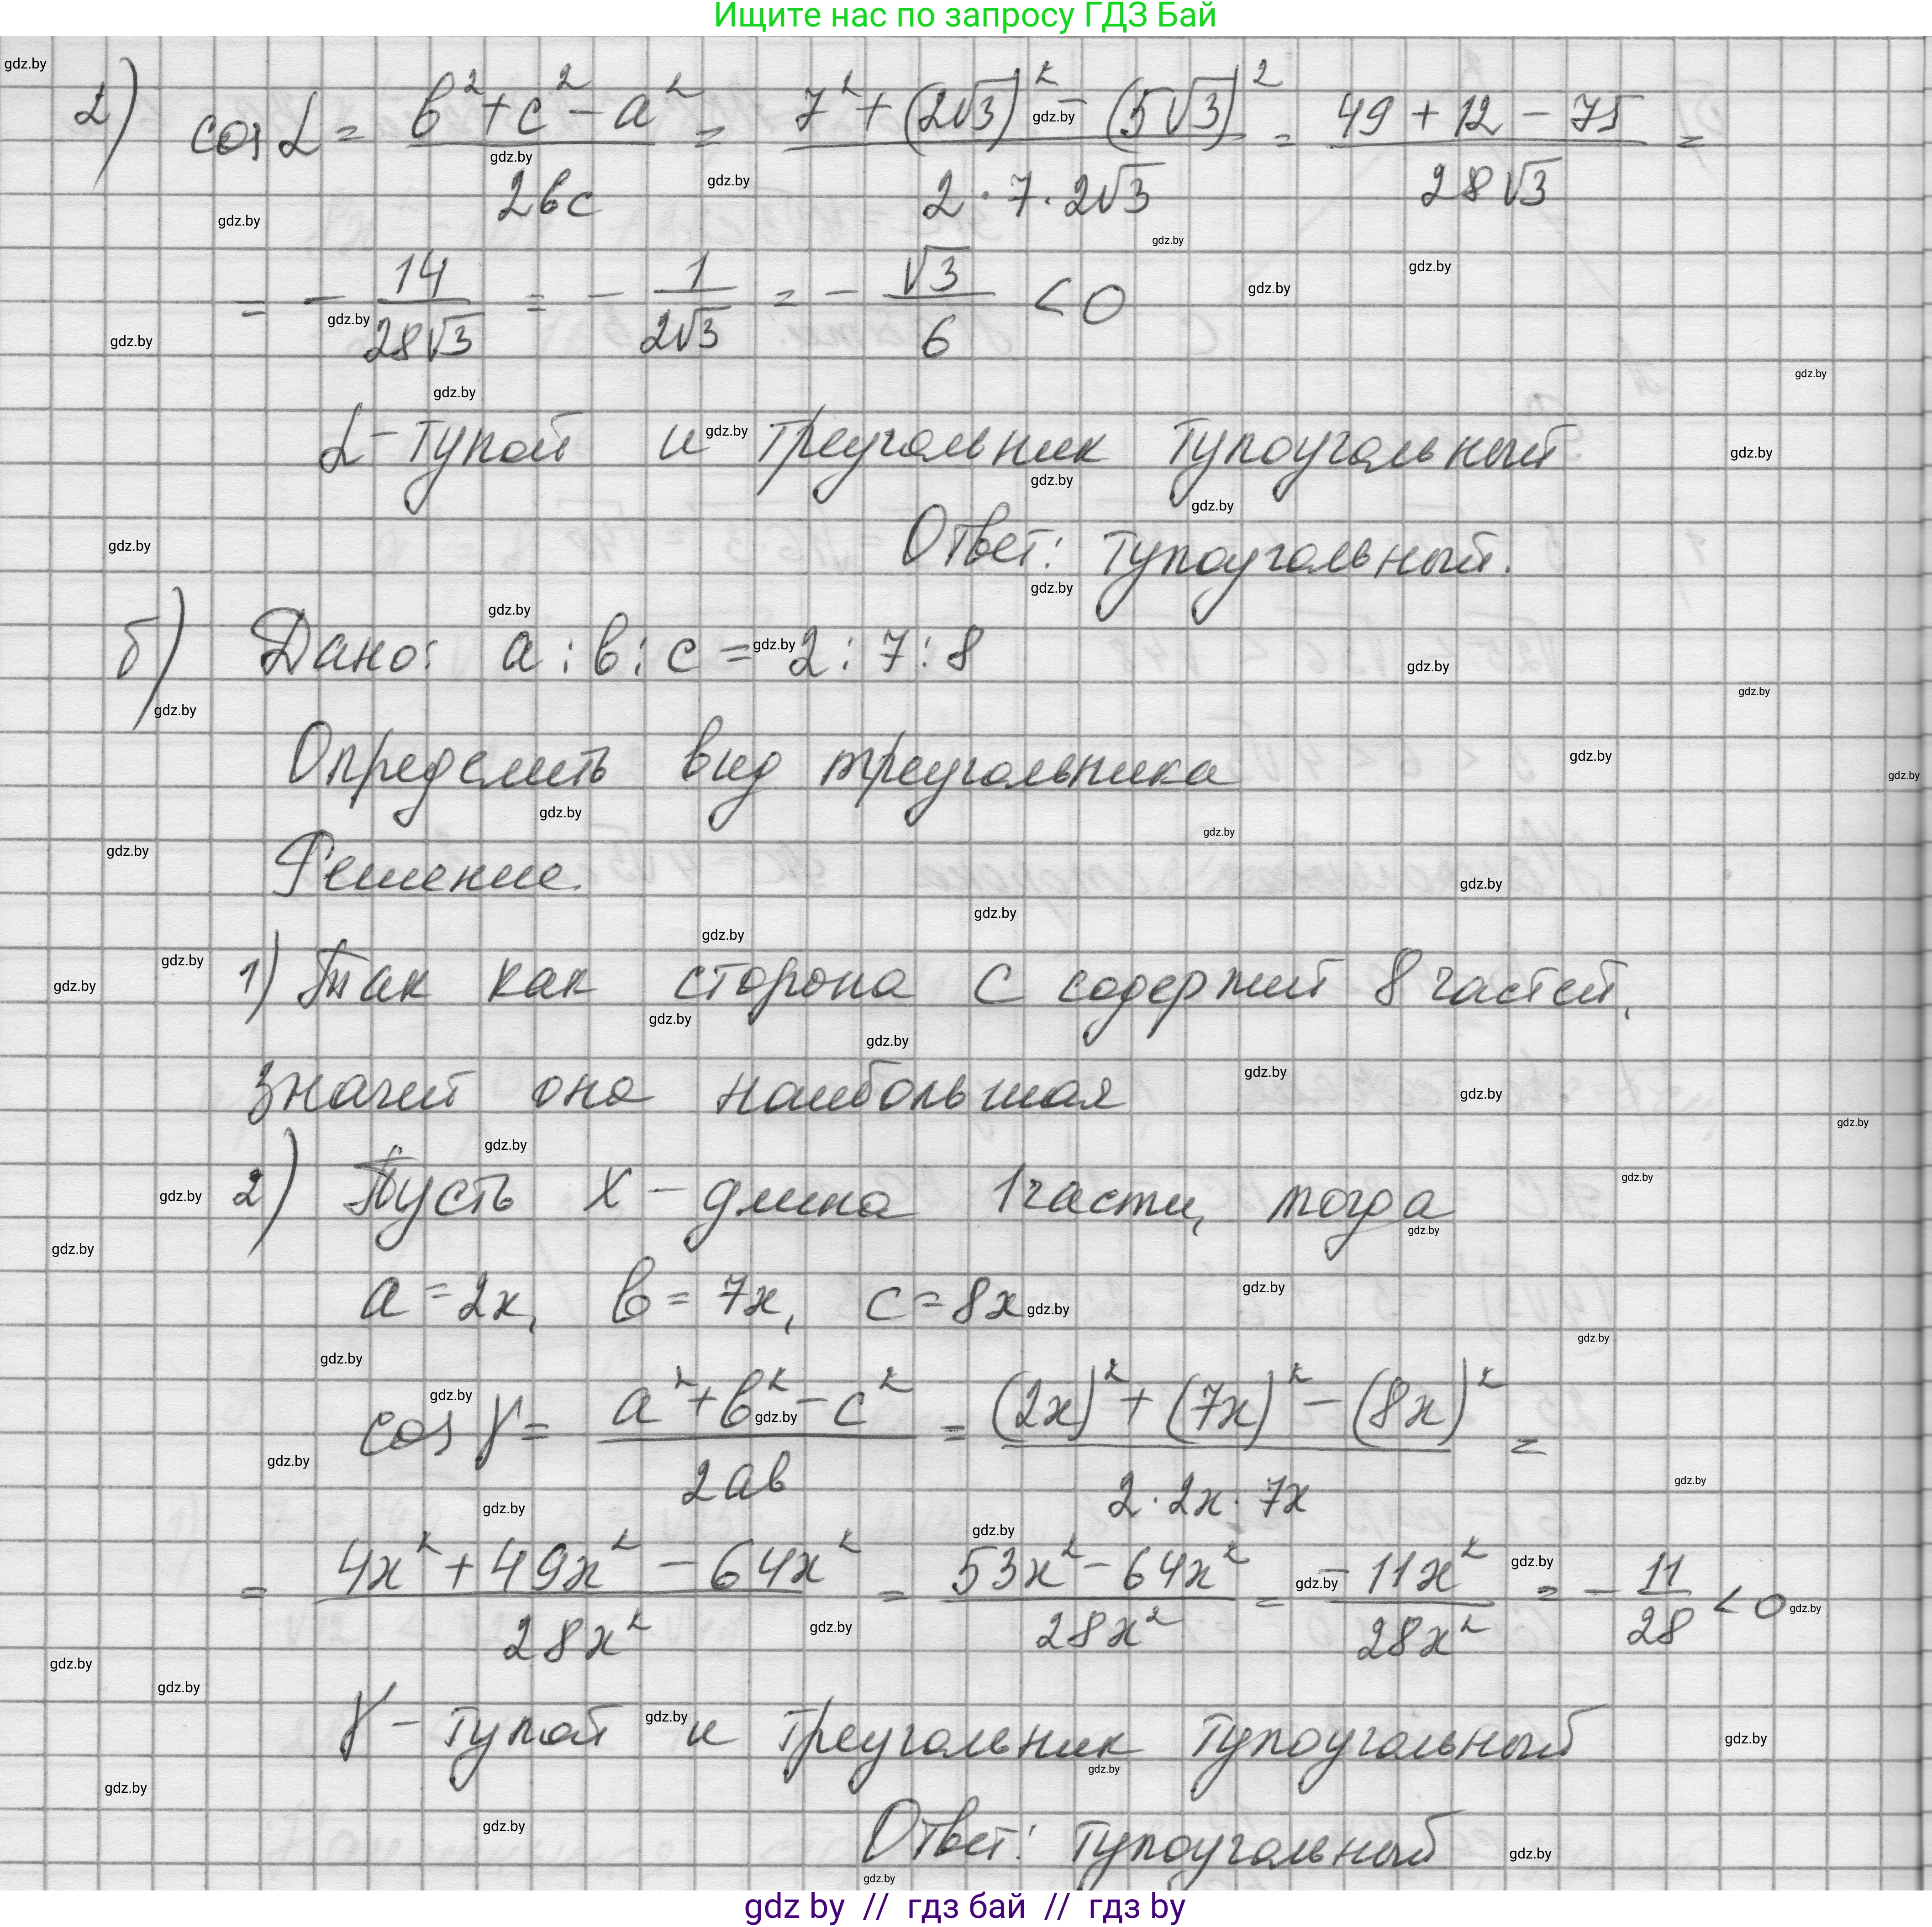 Ищите нас по запросу ГДЗ Бай
2) cos α = (в² + c² − a²) / 2вc = (7² + (2√3)² − (5√3)²) / (2·7·2√3) = (49 + 12 − 75) / 28√3 =
= − 14 / 28√3 = − 1 / 2√3 = − √3 / 6 < 0
α − тупой и треугольник тупоугольный
Ответ: тупоугольный.
б) Дано: a : в : c = 2 : 7 : 8
Определить вид треугольника
Решение.
1) Так как сторона c содержит 8 частей,
значит она наибольшая
2) Пусть x − длина 1 части, тогда
a = 2x, в = 7x, c = 8x
cos γ = (a² + в² − c²) / 2aв = ((2x)² + (7x)² − (8x)²) / (2·2x·7x) =
= (4x² + 49x² − 64x²) / 28x² = (53x² − 64x²) / 28x² = −11x² / 28x² = − 11 / 28 < 0
γ − тупой и треугольник тупоугольный
Ответ: тупоугольный
gdz by // гдз бай // гдз by